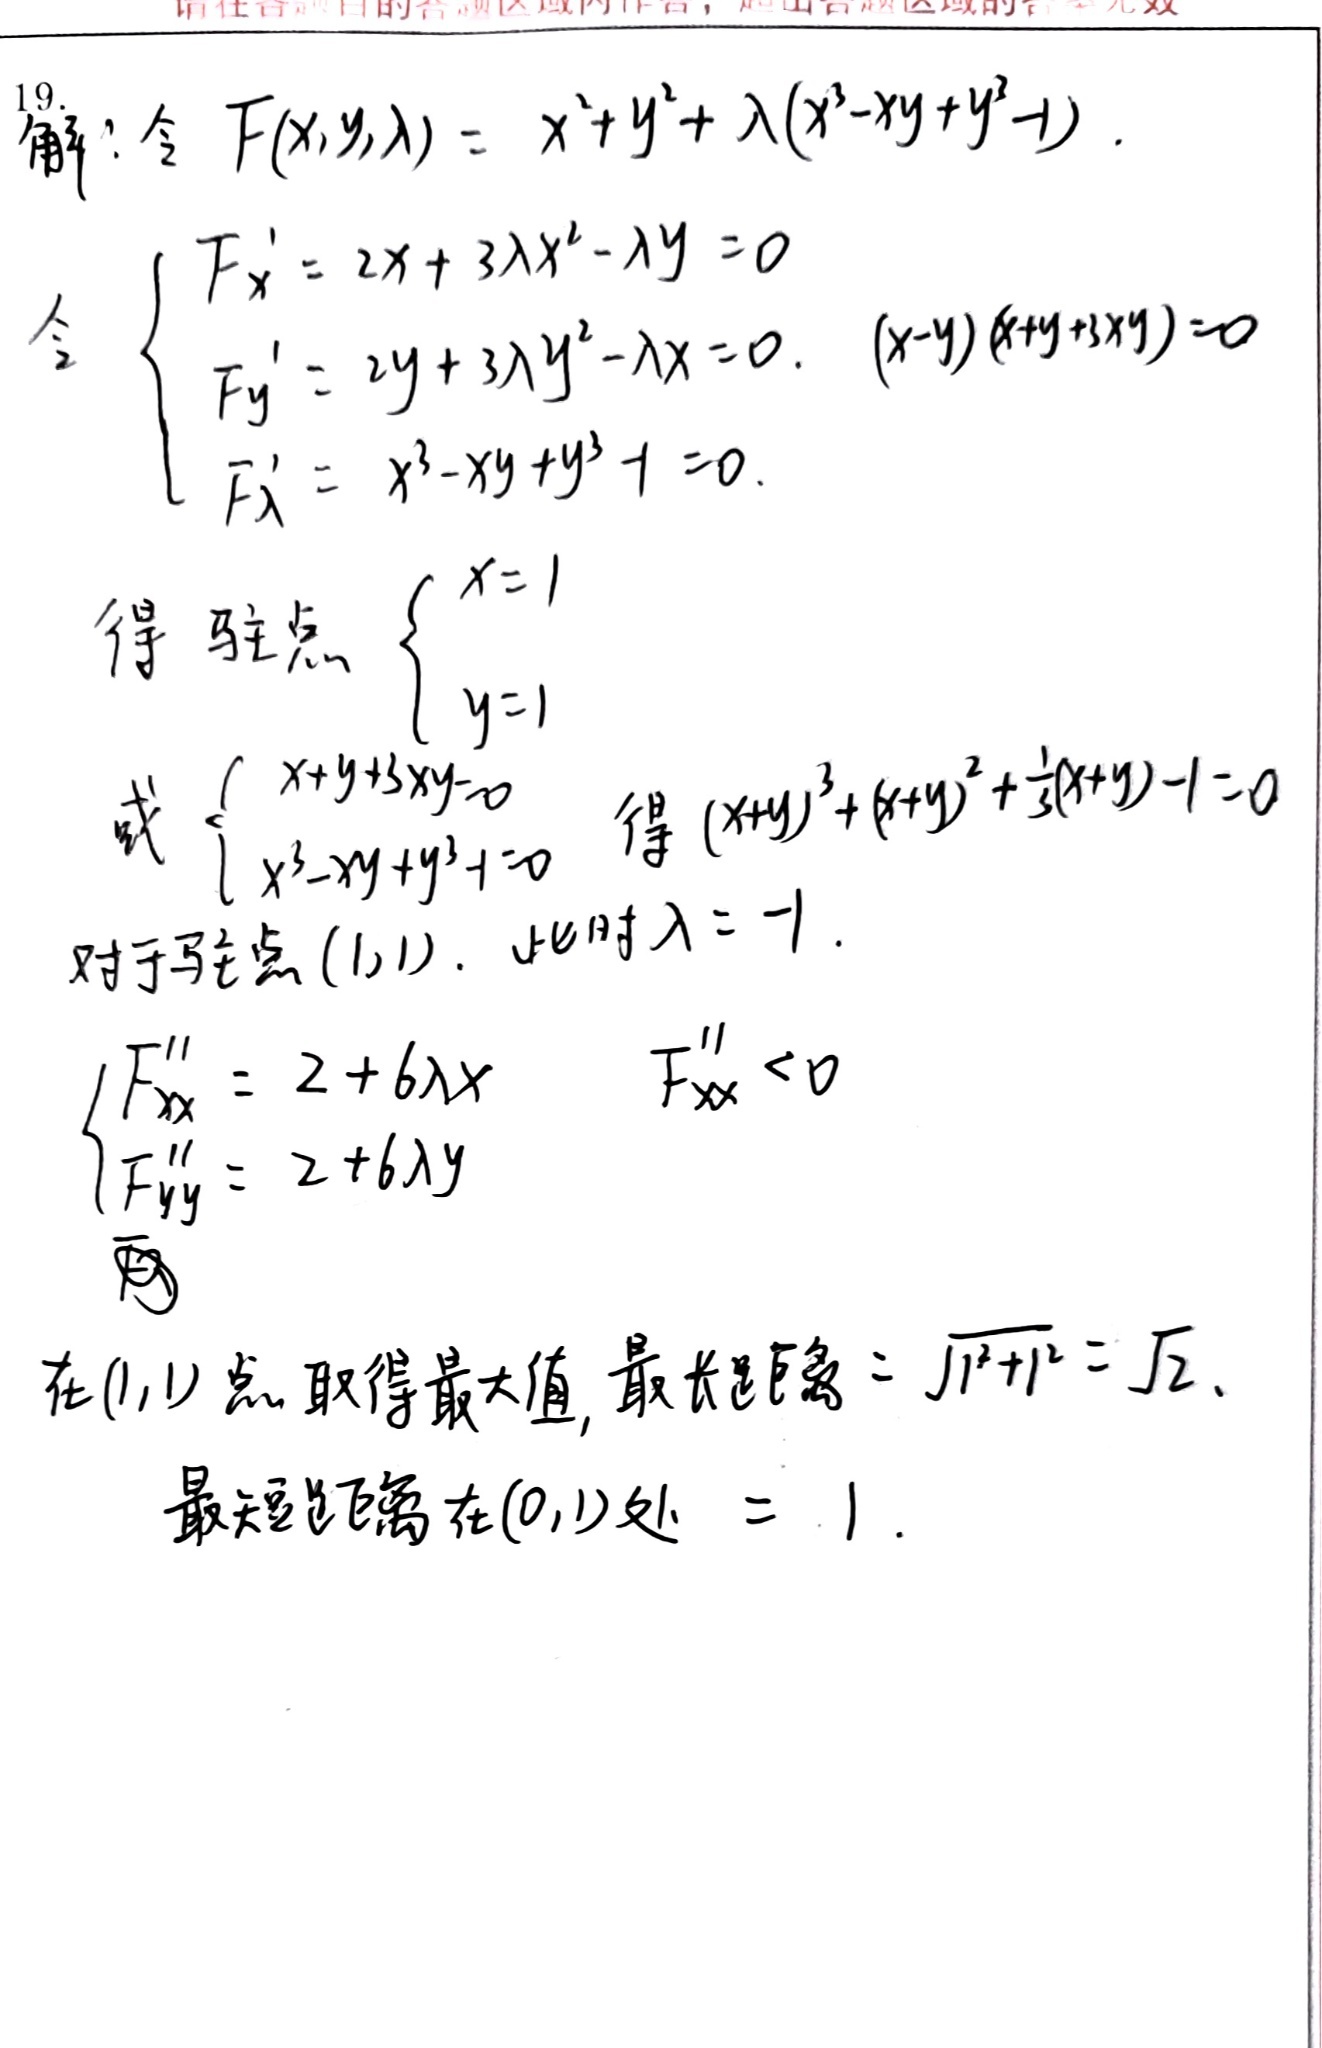 请在各题目的答题区域内作答，超出答题区域的答案无效
19.
解：令 F(x,y,λ) = x²+y²+ λ(x³-xy+y³-1) .
令 { Fx' = 2x + 3λx² - λy = 0
Fy' = 2y + 3λy² - λx = 0. (x-y)(x+y+3xy)=0
Fλ' = x³-xy+y³-1 = 0.
得 驻点 { x=1
y=1
或 { x+y+3xy=0
x³-xy+y³-1=0 得 (x+y)³+(x+y)²+⅓(x+y)-1=0
对于驻点(1,1). 此时λ = -1 .
{ F''xx = 2+6λx F''xx <0
F''yy = 2+6λy
在(1,1)点取得最大值, 最长距离 = √1²+1² = √2、
最短距离在(0,1)处 = 1 .